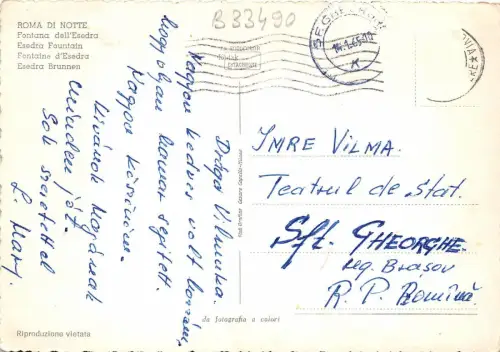 B33490
ROMA DI NOTTE
Fontana dell'Esedra
Esedra Fountain
Fontaine d'Esedra
Esedra Brunnen
Drága Vilmuka.
Nagyon kedves volt
hogy olyan hamar segített.
Nagyon köszönöm.
Kívánok magának
minden jót.
Sok szeretettel
L. Mary.
IMRE VILMA.
Teatrul de stat.
Sft. GHEORGHE.
reg. Brașov
R. P. Romînă.
da fotografia a colori
Riproduzione vietata